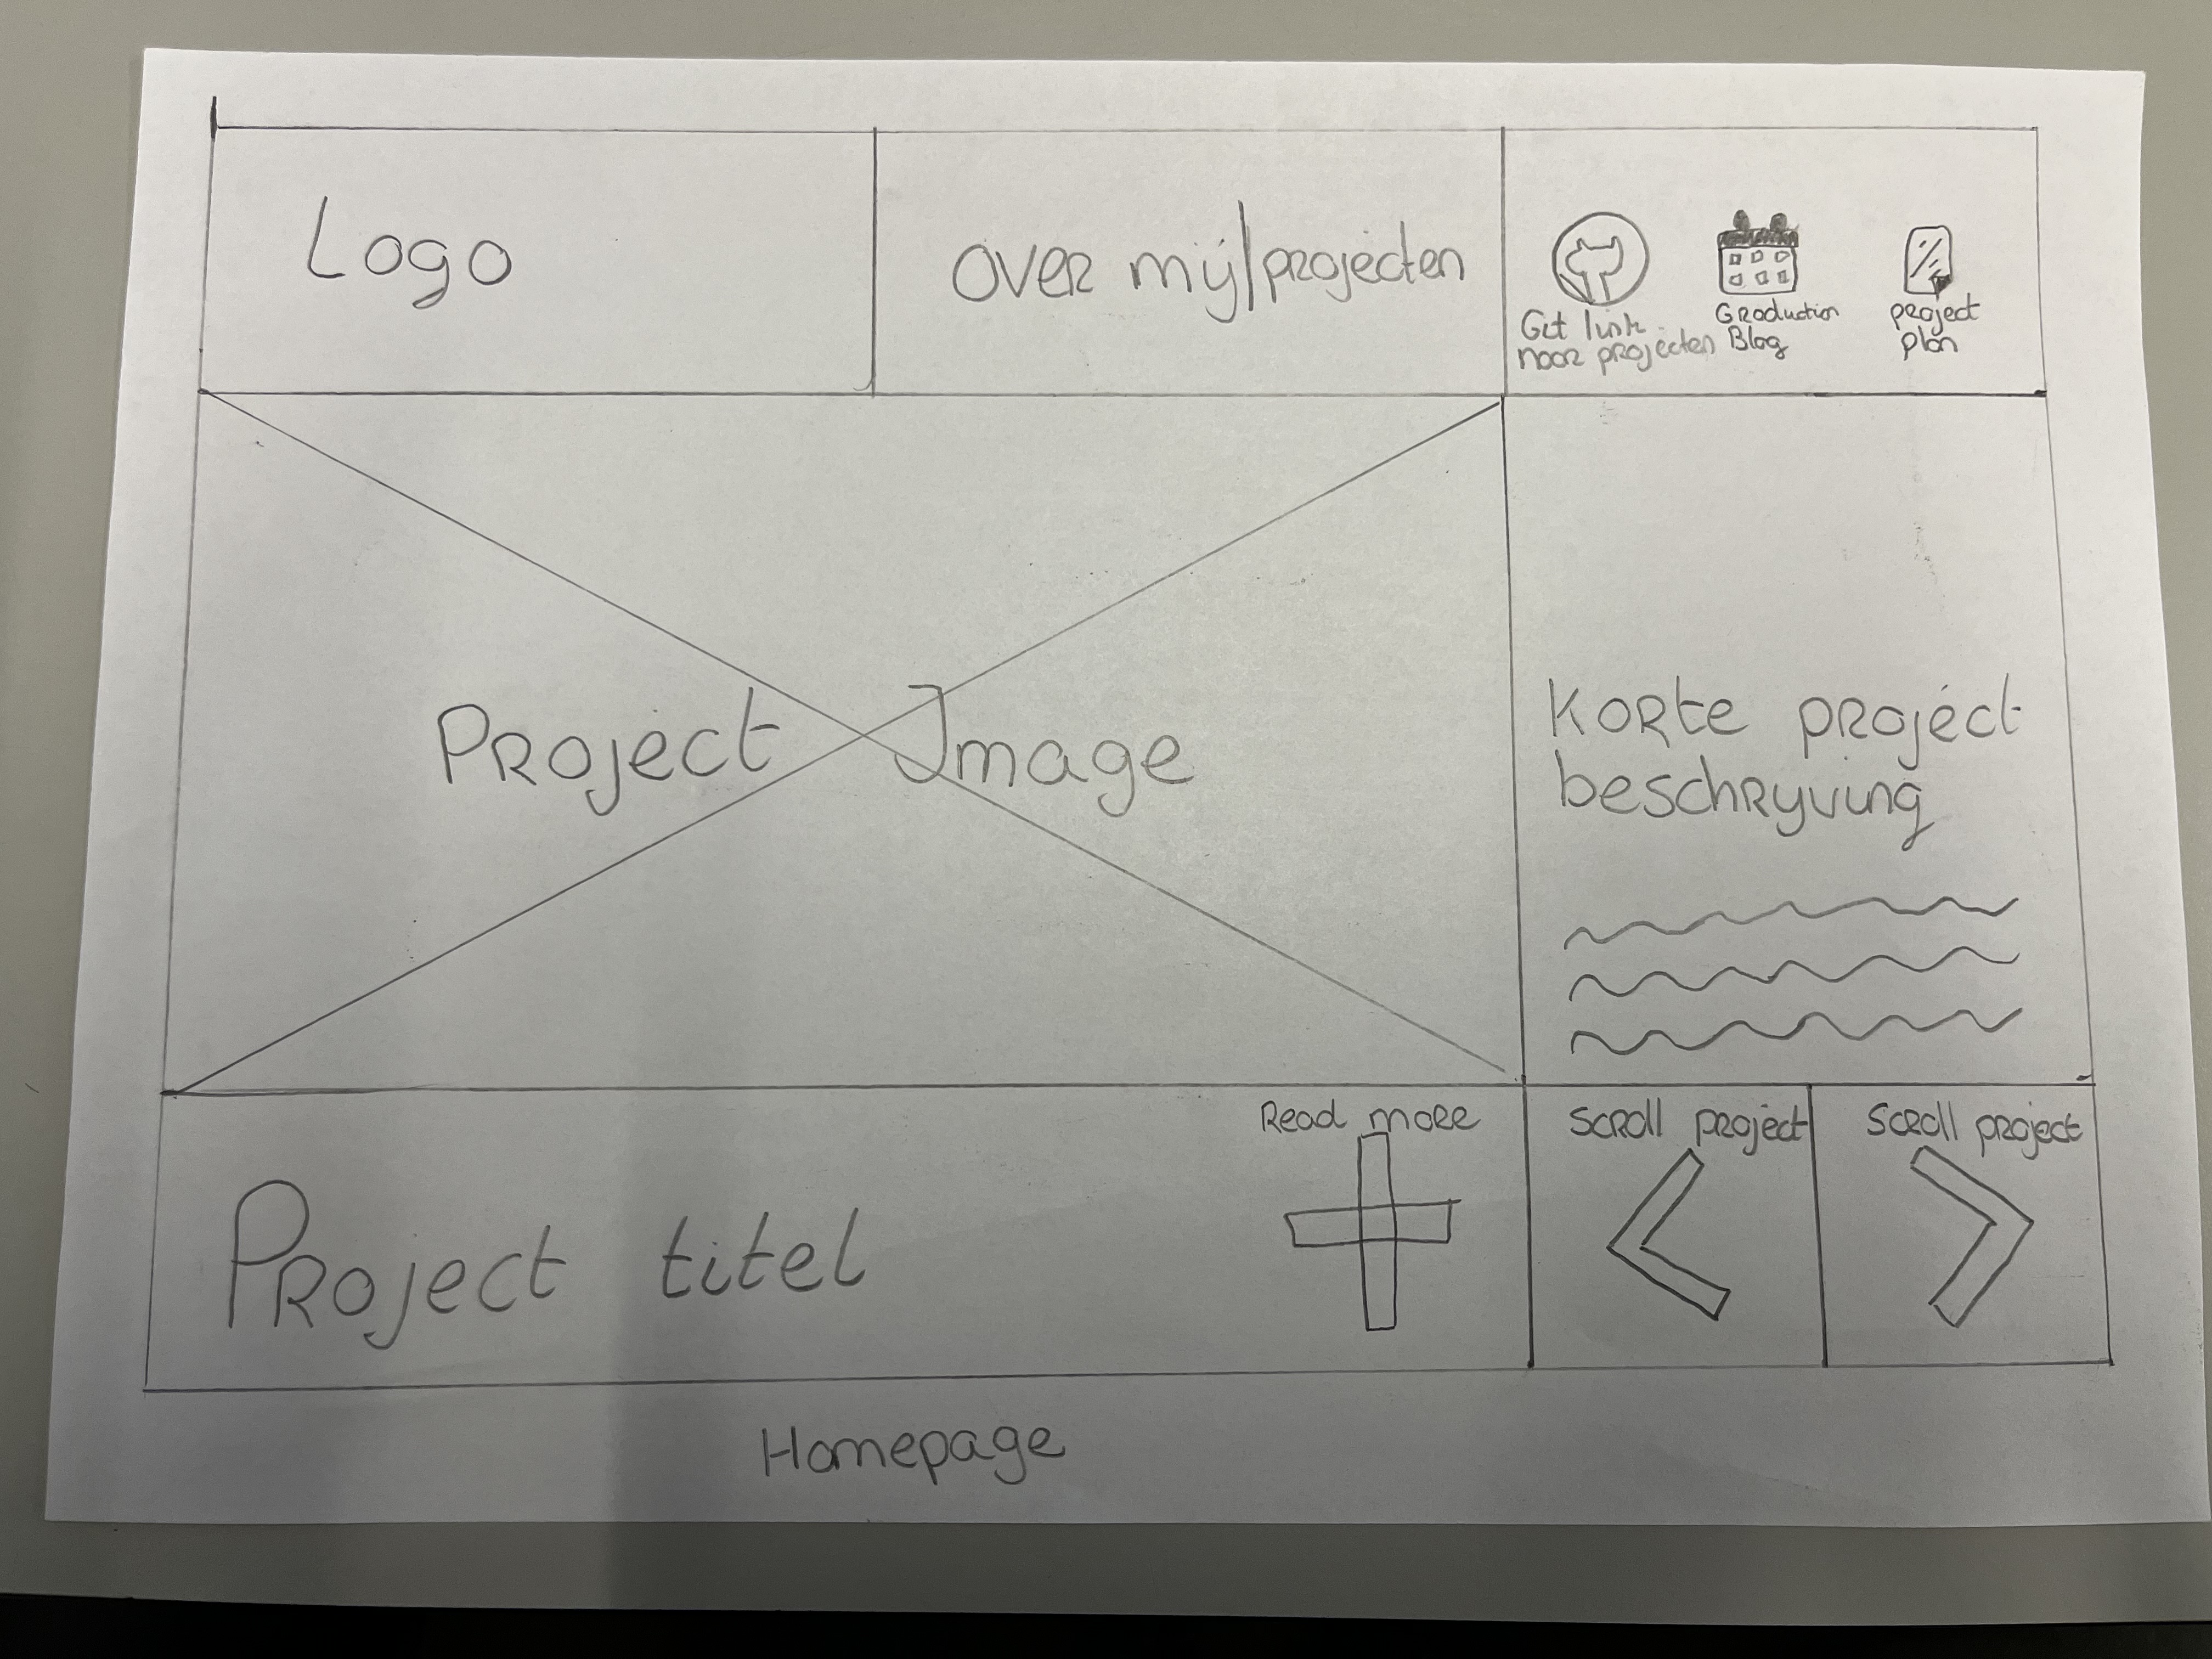 Logo
Over mij/projecten
Git link
naar projecten
Graduation
Blog
project
plan
Project Image
Korte project
beschryving
Project titel
Read more
scroll project
scroll project
Homepage